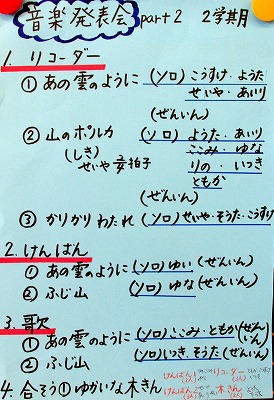 音楽発表会 part2 2学期
1. リコーダー
① あの雲のように (ソロ) こうすけ・ようた
せいや・あいり
(ぜんいん)
② 山のポルカ (ソロ) ようた・あいり
(しき) ここみ・ゆな
せいや 拍子 りの・いつき
ともか
(ぜんいん)
③ かりかりわたれ (ソロ) せいや・そうた・こうすけ
2. けんばん
① あの雲のように (ソロ) ゆい (ぜんいん)
② ふじ山 (ソロ) ゆな (ぜんいん)
3. 歌
① あの雲のように (ソロ) ここみ・ともか (ぜんいん)
② ふじ山 (ソロ) いつき、そうた (ぜんいん)
4. 合そう ① ゆかいな木きん
けんばん1 リコーダー
けんばん2 木きん